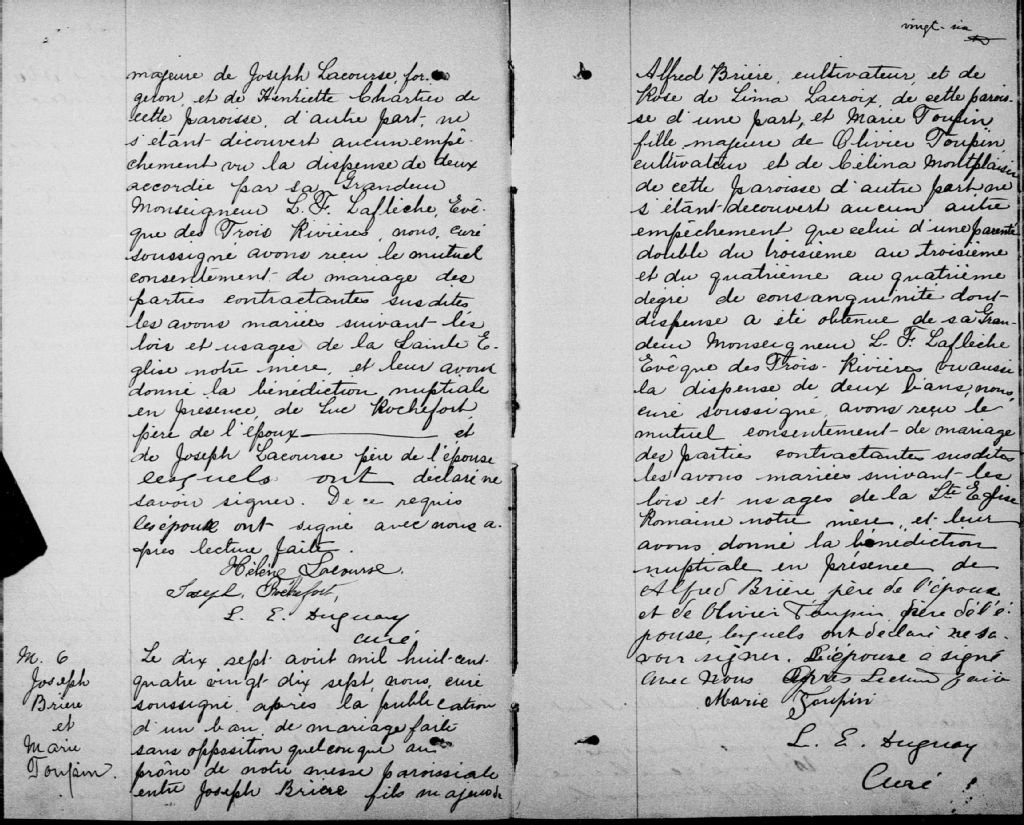 majeure de Joseph Lacourse, for-
geron, et de Henriette Chartier de
cette paroisse, d'autre part, ne
s'étant découvert aucun empê-
chement vu la dispense de deux
accordée par sa Grandeur
Monseigneur L. F. Laflèche, Evê-
que des Trois Rivières, nous, curé
soussigné avons reçu le mutuel
consentement de mariage des
parties contractantes susdites
les avons mariées suivant les
lois et usages de la Sainte E-
glise notre mère, et leur avons
donné la bénédiction nuptiale
en présence, de Luc Rochefort,
père de l'époux et
de Joseph Lacourse père de l'épouse
lesquels ont déclaré ne
savoir signer. De ce requis
les époux ont signé avec nous a-
près lecture faite.
Hélène Lacourse.
Joseph, Rochefort,
L. E. Duguay
curé
M. 6
Joseph
Brière
et
Marie
Toupin.
Le dix sept avril mil huit-cent-
quatre vingt dix sept, nous, curé
sousigné, après la publication
d'un ban de mariage faite
sans opposition quelconque au
prône de notre messe paroissiale
entre Joseph Brière fils majeur de
vingt-six
Alfred Brière, cultivateur, et de
Rose de Lima Lacroix, de cette parois-
se d'une part, et Marie Toupin,
fille majeure de Olivier Toupin,
cultivateur et de Célina Montplaisir
de cette paroisse d'autre part ne
s'étant découvert aucun autre
empêchement que celui d'une parenté
double du troisième au troisième
et du quatrième au quatrième
degré de consanguinité dont
dispense a été obtenue de sa Gran-
deur Monseigneur L. F. Laflèche
Evêque des Trois-Rivières, vu aussi
la dispense de deux bans, nous,
curé soussigné, avons reçu le
mutuel consentement de mariage
des parties contractantes susdites
les avons mariées suivant les
lois et usages de la Ste Eglise
Romaine notre mère, et leur
avons donné la bénédiction
nuptiale en présence de
Alfred Brière, père de l'époux
et de Olivier Toupin, père de l'é-
pouse, lesquels ont déclaré ne sa-
voir signer. L'épouse a signé
avec nous après lecture faite
Marie Toupin
L. E. Duguay
Curé